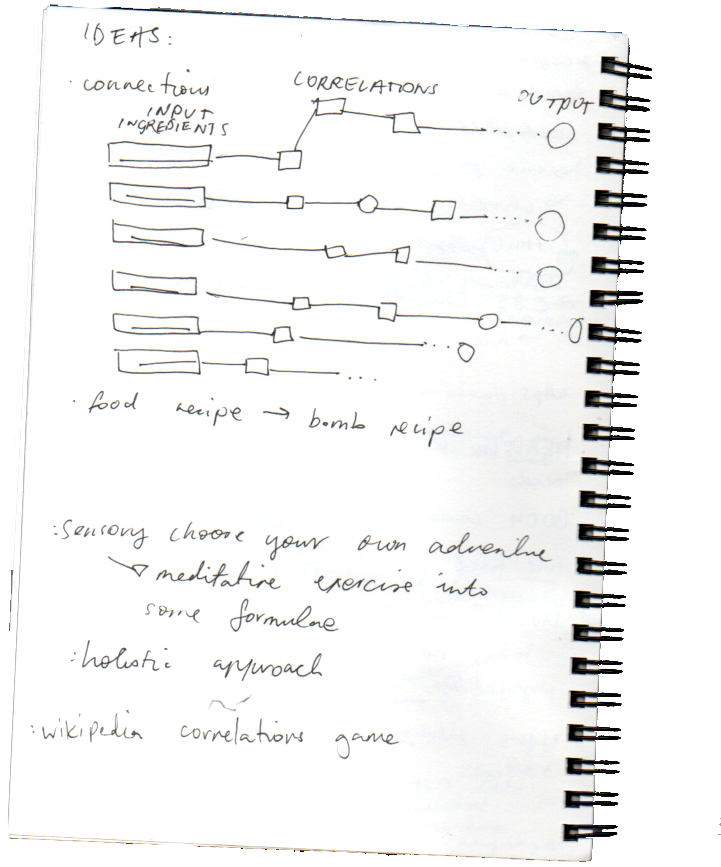 IDEAS:
· connections
CORRELATIONS
OUTPUT
INPUT
INGREDIENTS
· food recipe → bomb recipe
: sensory choose your own adventure
meditative exercise into
some formulae
: holistic approach
: wikipedia correlations game